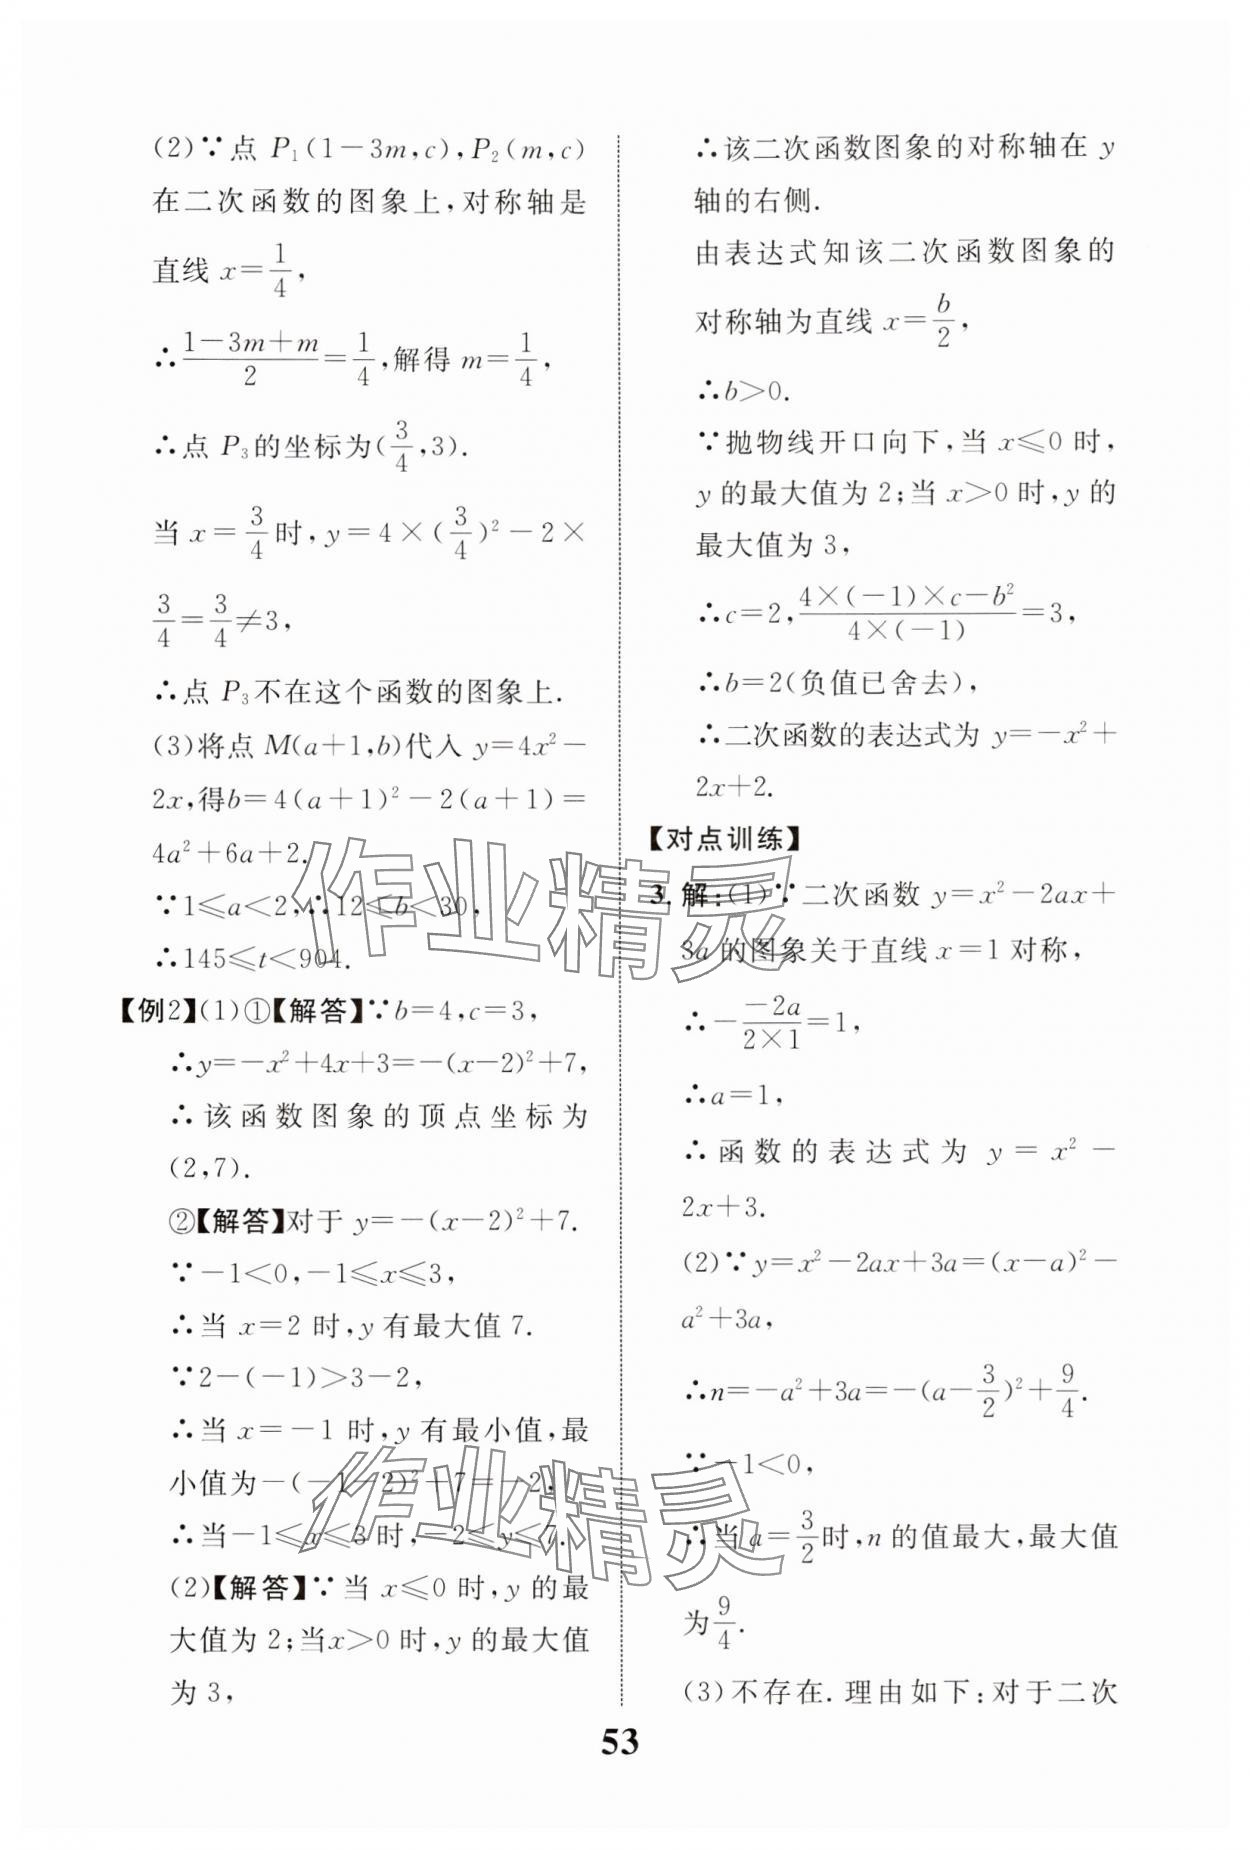 (2)∵点 P₁(1-3m,c),P₂(m,c)
在二次函数的图象上,对称轴是
直线 x=1/4,
∴(1-3m+m)/2=1/4,解得 m=1/4,
∴点 P₃的坐标为(3/4,3).
当 x=3/4时,y=4×(3/4)²-2×
3/4=3/4≠3,
∴点 P₃不在这个函数的图象上.
(3)将点 M(a+1,b)代入 y=4x²-
2x,得b=4(a+1)²-2(a+1)=
4a²+6a+2.
∵1≤a<2,∴12≤b<30,
∴145≤t<904.
【例2】(1)①【解答】∵b=4,c=3,
∴y=-x²+4x+3=-(x-2)²+7,
∴该函数图象的顶点坐标为
(2,7).
②【解答】对于 y=-(x-2)²+7.
∵-1<0,-1≤x≤3,
∴当 x=2 时,y有最大值 7.
∵2-(-1)>3-2,
∴当 x=-1 时,y有最小值,最
小值为-(-1-2)²+7=-2,
∴当-1≤x≤3 时,-2≤y≤7.
(2)【解答】∵当 x≤0 时,y 的最
大值为 2;当x>0 时,y 的最大值
为 3,
∴该二次函数图象的对称轴在 y
轴的右侧.
由表达式知该二次函数图象的
对称轴为直线 x=b/2,
∴b>0.
∵抛物线开口向下,当 x≤0 时,
y 的最大值为 2;当 x>0 时,y 的
最大值为 3,
∴c=2,(4×(-1)×c-b²)/(4×(-1))=3,
∴b=2(负值已舍去),
∴二次函数的表达式为 y=-x²+
2x+2.
【对点训练】
3. 解:(1)∵二次函数 y=x²-2ax+
3a 的图象关于直线 x=1 对称,
∴-(-2a)/(2×1)=1,
∴a=1,
∴函数的表达式为 y=x²-
2x+3.
(2)∵y=x²-2ax+3a=(x-a)²-
a²+3a,
∴n=-a²+3a=-(a-3/2)²+9/4.
∵-1<0,
∴当 a=3/2时,n 的值最大,最大值
为9/4.
(3)不存在.理由如下:对于二次
53
作业精灵
作业精灵